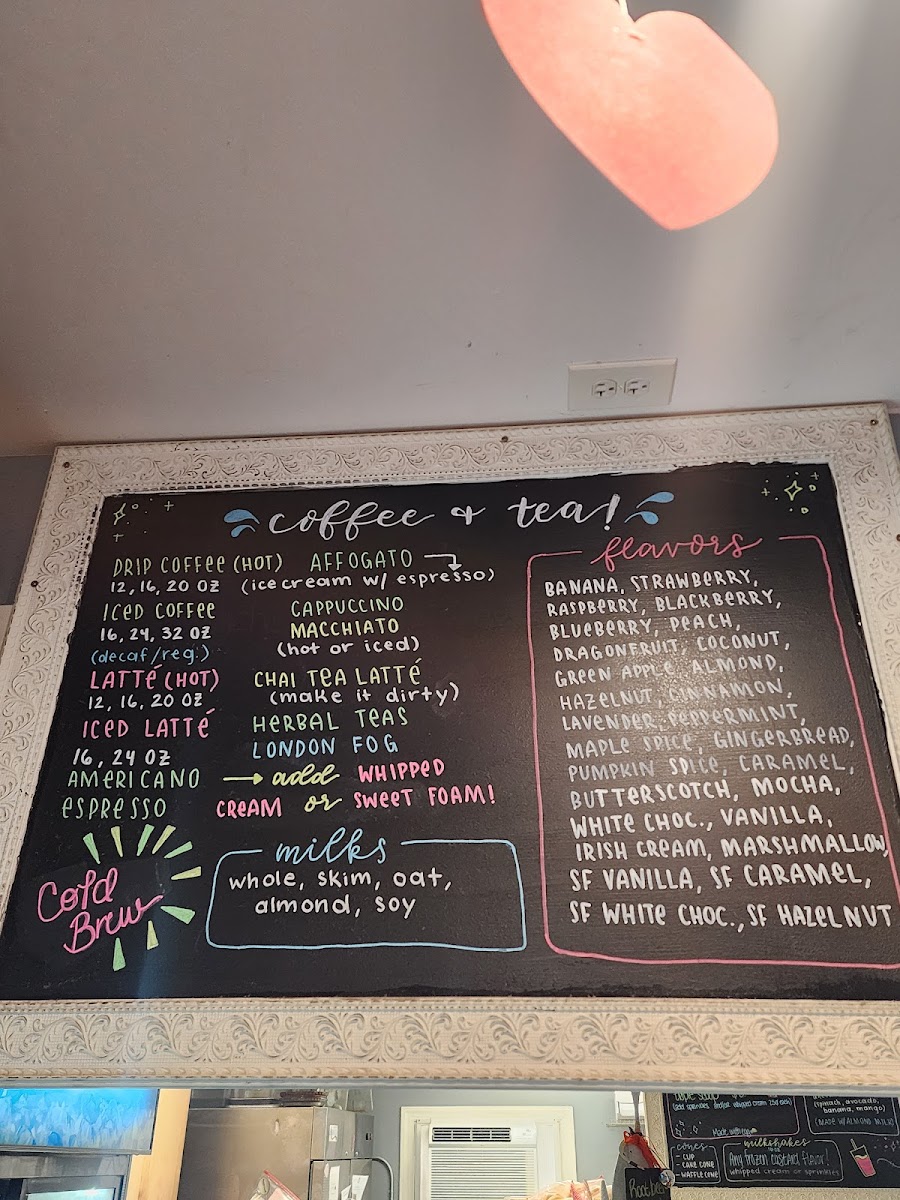 coffee & tea!
DRIP COFFEE (HOT)
12, 16, 20 OZ
ICED COFFEE
16, 24, 32 OZ
(decaf/reg.)
LATTÉ (HOT)
12, 16, 20 OZ
ICED LATTÉ
16, 24 OZ
AMERICANO
ESPRESSO
Cold
Brew
AFFOGATO
(ice cream w/ espresso)
CAPPUCCINO
MACCHIATO
(hot or iced)
CHAI TEA LATTÉ
(make it dirty)
HERBAL TEAS
LONDON FOG
→ add WHIPPED
CREAM or SWEET FOAM!
milks
whole, skim, oat,
almond, soy
flavors
BANANA, STRAWBERRY,
RASPBERRY, BLACKBERRY,
BLUEBERRY, PEACH,
DRAGONFRUIT, COCONUT,
GREEN APPLE, ALMOND,
HAZELNUT, CINNAMON,
LAVENDER, PEPPERMINT,
MAPLE SPICE, GINGERBREAD,
PUMPKIN SPICE, CARAMEL,
BUTTERSCOTCH, MOCHA,
WHITE CHOC., VANILLA,
IRISH CREAM, MARSHMALLOW,
SF VANILLA, SF CARAMEL,
SF WHITE CHOC., SF HAZELNUT
(spinach, avocado,
banana, mango)
(MADE W/ALMOND MILK)
cones
- CUP
- CAKE CONE
- WAFFLE CONE
milkshakes
Any frozen custard flavor!
whipped cream or sprinkles